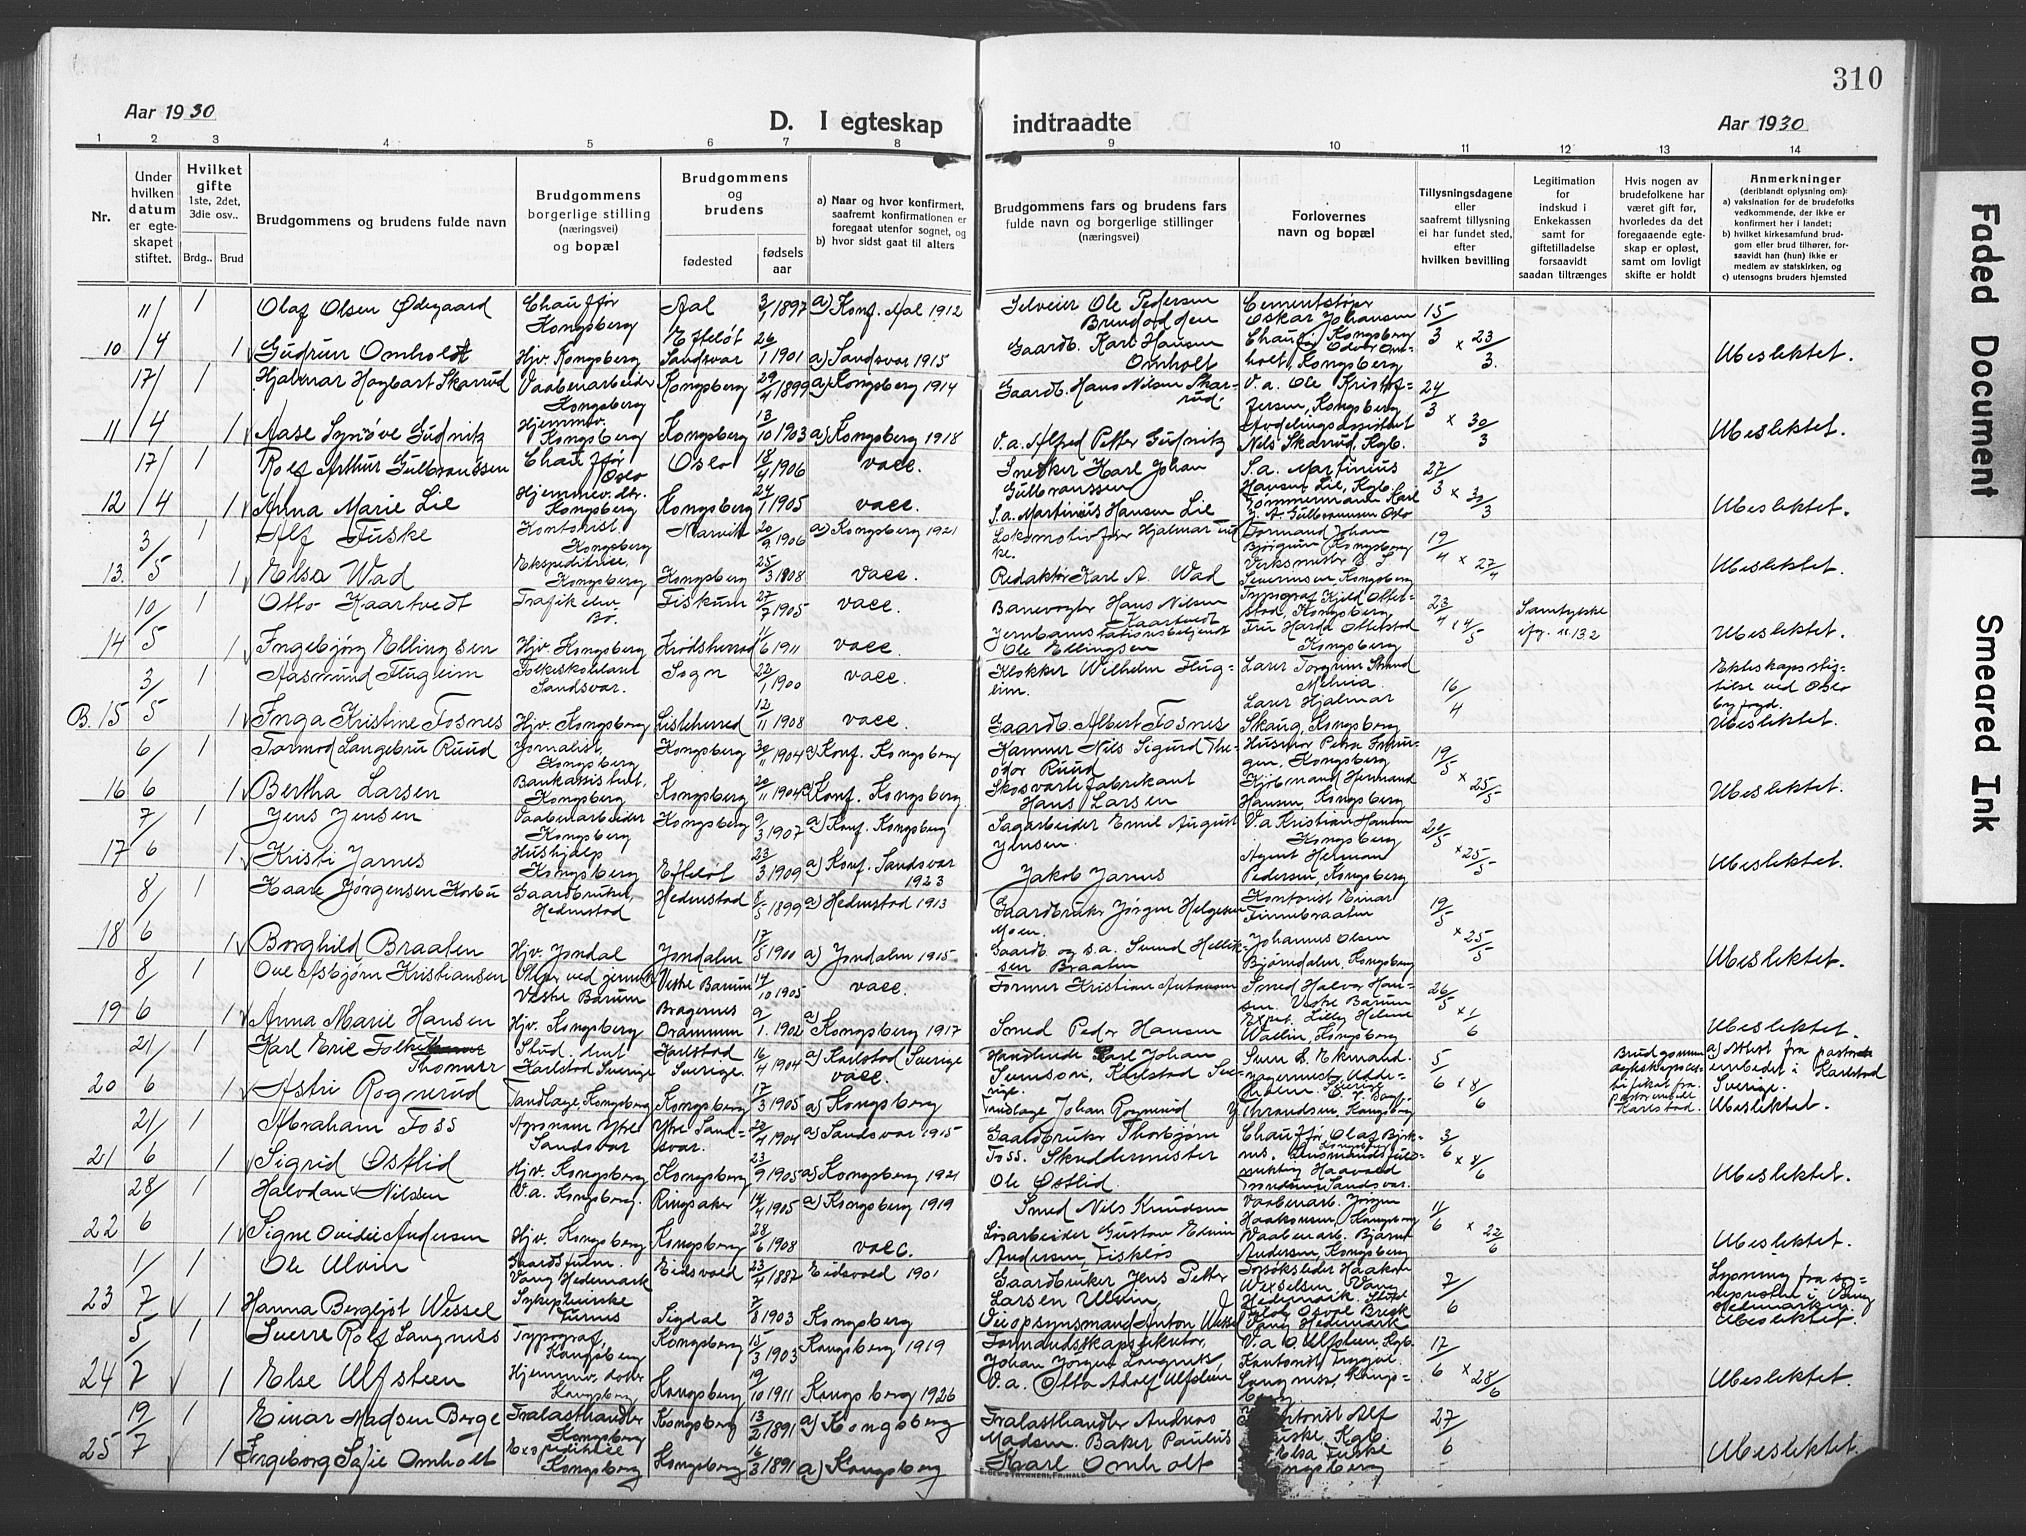 310
Aar 1930
D. I egteskap indtraadte
Aar 1930
1 2 3 4 5 6 7 8 9 10 11 12 13 14
Nr.
Under hvilken datum er egteskapet stiftet.
Hvilket gifte 1ste, 2det, 3die osv..
Brdg.. Brud
Brudgommens og brudens fulde navn
Brudgommens borgerlige stilling (næringsvei) og bopæl
Brudgommens og brudens
fødested
fødsels aar
a) Naar og hvor konfirmert, saafremt konfirmationen er foregaat utenfor sognet, og
b) hvor sidst gaat til alters
Brudgommens fars og brudens fars fulde navn og borgerlige stillinger (næringsvei)
Forlovernes navn og bopæl
Tillysningsdagene eller saafremt tillysning ei har fundet sted, efter hvilken bevilling
Legitimation for indskud i Enkekassen samt for giftetilladelse forsaavidt saadan tiltrænges
Hvis nogen av brudefolkene har været gift før, hvorledes da det foregaaende egteskap er opløst, samt om lovligt skifte er holdt
Anmerkninger
(deriblandt oplysning om):
a) vaksination for de brudefolks vedkommende, der ikke er konfirmert her i landet;
b) hvilket kirkesamfund brudgom eller brud tilhører, forsaavidt han (hun) ikke er medlem av statskirken, og
c) utensogns bruders hjemsted
10 11/4 1 Olaf Olsen Ødegaard Chauffør Kongsberg Aal 3/1 1897 a) Konf. Aal 1912 Selveier Ole Pedersen Cementstøper Oskar Johansen 15/3 x 23/3
1 Gudrun Omholdt Hjv. Kongsberg Efteløt Sandsvær 26/1 1901 a) Sandsvær 1915 Gaardb. Karl Hansen Omholt Ubeslektet.
11 17/4 1 Hjalmar Hagbart Skarrud Vaabenarbeider Kongsberg Kongsberg 29/4 1899 a) Kongsberg 1914 Gaardb. Hans Nilsen Skarrud. V.a. Ole Kristoffersen, Kongsberg 24/3 x 30/3
1 Aase Synøve Gudnitz Hjemmev. Kongsberg Kongsberg 13/10 1903 a) Kongsberg 1918 V.a. Alfred Petter Gudnitz Avdelingsassistent Nils Skarrud, Kgb. Ubeslektet.
12 17/4 1 Rolf Arthur Gulbranssen Chauffør Oslo Oslo 18/4 1906 vacc. Snekker Karl Johan Gulbranssen S.a. Martinius Hansen Lie, Kgb. 27/3 x 30/3
1 Anna Marie Lie Hjemmev. dtr. Kongsberg Kongsberg 24/1 1905 vacc. S.a. Martinius Hansen Lie Tømmermann Karl J. A. Gulbranssen Oslo Ubeslektet.
13. 3/5 1 Alf Fuske Kontorist Kongsberg Narvik 20/9 1906 a) Kongsberg 1921 Lokomotivfører Hjalmar Fuske. Formand Johan Bjørgum Kongsberg 19/4 x 27/4
1 Elsa Wad Ekspeditrice, Kongsberg Kongsberg 25/3 1908 vacc. Redaktør Karl A. Wad Verksmester Severinsen, Kongsberg Ubeslektet.
14 10/5 1 Otto Kaartvedt Trafikelev Bø. Fiskum 27/7 1905 vacc. Banevogter Hans Nilsen Kaartvedt Typograf Kjeld Otterstad, Kongsberg 23/4 x 4/5 Samtykke
1 Ingebjørg Ellingsen Hjv. Kongsberg Krødsherred 6 1911 vacc. Ole Ellingsen Fru Harda Otterstad Kongsberg Ubeslektet.
B. 15 3/5 1 Aasmund Flugheim Folkeskolelærer Sandsvær. Sogn 22/1 1900 vacc. Klokker Wilhelm Flugeim. Lærer Torgrim Strand 16/4
1 Inga Kristine Fosnes Hjv. Kongsberg Lisleherred 12/11 1908 vacc. Gaardb. Albert Fosnes Lærer Hjalmar Skaug, Kongsberg Ekteskapsstiftelse ved Oslo byfogd. Ubeslektet.
16 6/6 1 Tormod Langebru Ruud Jornalist, Kongsberg Kongsberg 30/11 1904 a) Konf. Kongsberg Nils Sigurd Theodor Ruud Kongsberg 19/5 x 25/5
1 Bertha Larsen Bankassistent, Kongsberg Kongsberg 20/11 1904 a) Konf. Kongsberg. Skosværtefabrikant Hans Larsen Kjøbmand Hermand Hansen, Kongsberg Ubeslektet.
17 7/6 1 Jens Jensen Vaabenarbeider Kongsberg Kongsberg 9/3 1907 a) Konf. Kongsberg Sagarbeider Emil August Jensen. V.a. Kristian Hansen Kongsberg x 25/5
1 Kristi Jarnes Hushjælp Kongsberg Efteløt 23/3 1909 a) Konf. Sandsvær 1923 Jakob Jarnes Agent Herman Pedersen, Kongsberg Ubeslektet.
18 8/6 1 Kaare Jørgensen Korbu Gaardbruker, Hedenstad Hedenstad 8/5 1899 a) Hedenstad 1913 Gaardbruker Jørgen Helgesen Moen. Kontorist Einar Finnebraaten 19/5 x 25/5
1 Borghild Braaten Hjv. Jondal Jondalen 17/5 1900 a) Jondalen 1915 Gaardb. og s.a. Svend Helliksen Braaten Johannes Olsen Bjørndalen, Kongsberg Ubeslektet.
19 8/6 1 Ove Asbjørn Kristiansen Vestre Bærum Vestre Bærum 14/10 1905 vacc. Former Kristian Antonsen Smed Halvor Hansen, Vestre Bærum 26/5 x 1/6
1 Anna Marie Hansen Hjv. Kongsberg Bragernes Drammen 9/1. 1902 a) Kongsberg 1917 Smed Peder Hansen Expet. Lilly Helene Wallin, Kongsberg Ubeslektet.
20 21/6 1 Karl Eric Folke Thomner Stud. Karlstad Sverige Karlstad Sverige. 16/4 1904 a) Karlstad Sverige vacc. Handlende Karl Johan Svenson, Karlstad Sverige. Sven E. Ekmand. 5/6 x 8/6 a) Attest fra pastorembedet i Karlstad Sverige.
1 Astri Rognerud Tandlæge, Kongsberg Kongsberg 17/3 1905 a) Kongsberg Tandlæge Johan Rognerud Thrandsen, Kongsberg Ubeslektet.
21 21/6 1 Abraham Foss Agronom Ytre Sandsvær Ytre Sandsvær. 22/4 1904 a) Sandsvær 1915 Gaardbruker Thorbjørn Foss. Chauffør Olaf 3/6 x 8/6
1 Sigrid Østlid Hjv. Kongsberg, Kongsberg 23/9 1905 a) Kongsberg 1921 Skuddermester Ole Østlid. Ubeslektet.
22 28/6 1 Halvdan Nilsen V.a. Kongsberg. Ringsaker 14/4 1905 a) Kongsberg 1919 Smed Nils Knudsen Vaabenarb. Jørgen Haakonsen, Kongsberg 11/6 x 22/6
1 Signe Ovidie Andersen Hjv. Kongsberg Kongsberg 28/6 1908 vacc. Gustav Edvin Andersen, Fiskløs Vaabenarb. Bjarne Andersen, Kongsberg Ubeslektet.
23 1/7 1 Ole Ulvin Gaardsfuldm. Vang Hedemark Eidsvold 23/4 1887 Eidsvold 1901 Gaardbruker Jens Petter Larsen Ulvin, Forsøksleder Haakon Wexelsen, Vang Hedemark. 7/6 Lysning fra
1 Hanna Bergljot Wessel Sykepleierske Sigdal 7/8 1903 Kongsberg Veiopsynsmand Anton Wessel Vang Hedemark Ubeslektet.
24 5/7 1 Sverre Rolf Langness Typograf, Kongsberg Kongsberg 15/3 1903 Kongsberg 1919 Formandsskapssekretær, Johan Jørgen Langness, V.a. O. Ulfsteen, Kgb. 17/6 x 28/6
1 Else Ulfsteen Hjemmev. dotter Kongsberg Kongsberg 19/10 1911 Kongsberg 1926 V.a. Otto Adolf Ulfsteen Kontorist Trygve Langness, Kongsberg Ubeslektet.
25 19/7 1 Einar Madsen Berge Trælasthandler Kongsberg Kongsberg 13/2 1891 a) Kongsberg Trælasthandler Andreas Madsen. Kontorist Alf Fuske, Kgb. 27/6
1 Ingeborg Sofie Omholt Expeditrice Kongsberg Kongsberg 16/3 1891 a) Kongsberg Baker Paulus Karl Omholt Elsa Fuske Kongsberg Ubeslektet.
E. SEM'S TRYKKERI, FR.HALD
Faded Document
Smeared Ink